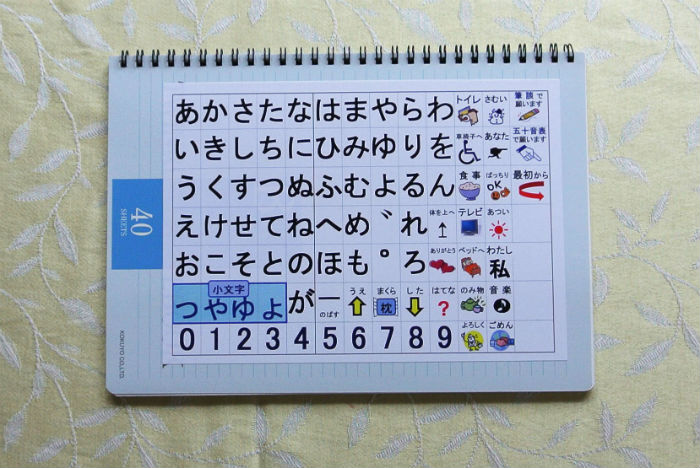 あかさたなはまやらわ トイレ さむい 筆談で願います
いきしちにひみゆりを 車椅子へ あなた 五十音表で願います
うくすつぬふむよるん 食事 ばっちりOK 最初から
えけせてねへめ゛れ 体を上へ テレビ あつい
おこそとのほも゜ろ ありがとう ベッドへ わたし 私
小文字
つやゆよ が ー のばす うえ まくら 枕 した はてな ? のみ物 音楽
0 1 2 3 4 5 6 7 8 9 よろしく ごめん
40
SHEETS
KOKUYO CO.,LTD.